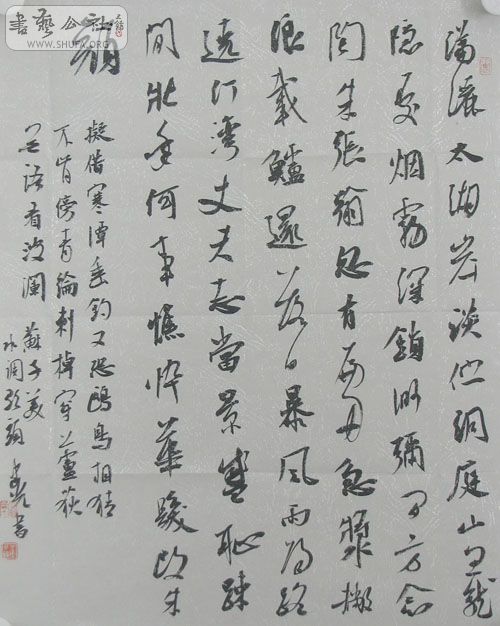 瀟灑太湖岩淡佇洞庭山魚龍
隐處烟霧深鎖渺彌間方念
陶朱張翰忽有扁舟急槳撇
浪載鱸還落日暴風雨歸路
遶汀灣丈夫志當景盛恥疎
閒壯年何事憔悴華髮改朱
顔
擬借寒潭垂釣又恐鷗鳥相猜
不肯傍青綸刺棹穿蘆荻
無語看波瀾 蘇子美
水調歌頭 書
書藝公社
WWW.SHUFA.ORG